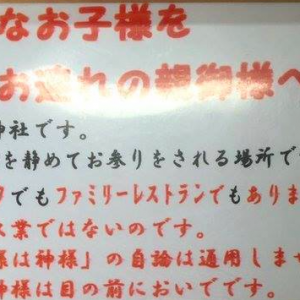 なお子様を
お連れの親御様へ
神社です。
を静めてお参りをされる場所で
でもファミリーレストランでもありま
業ではないのです。
様は神様」の自論は通用しませ
神様は目の前においでです。